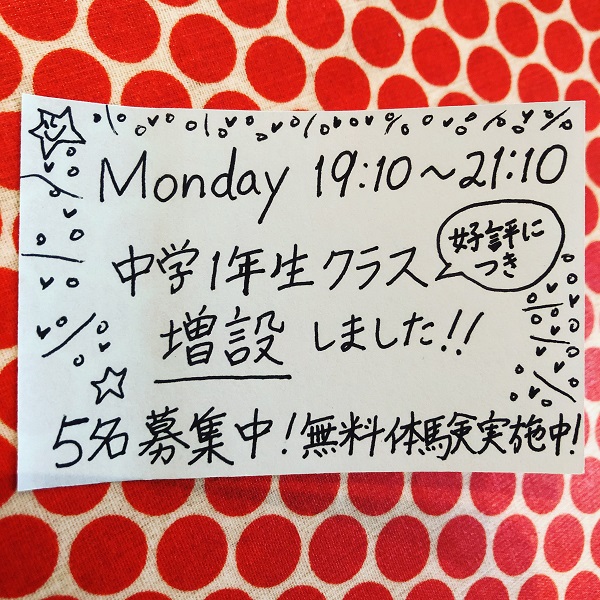 Monday 19:10～21:10
好評に
つき
中学1年生クラス
増設しました!!
5名募集中!無料体験実施中!